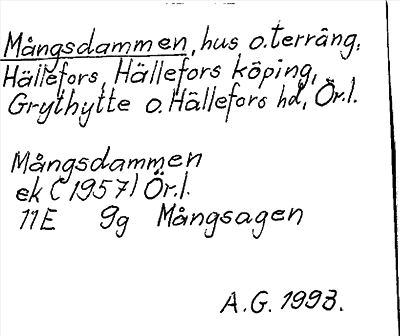 Mångsdammen, hus o. terräng,
Hällefors, Hällefors köping,
Grythytte o. Hällefors hd, Ör.l.
Mångsdammen
ek (1957) Ör.l.
11E 9g Mångsagen
A.G. 1993.